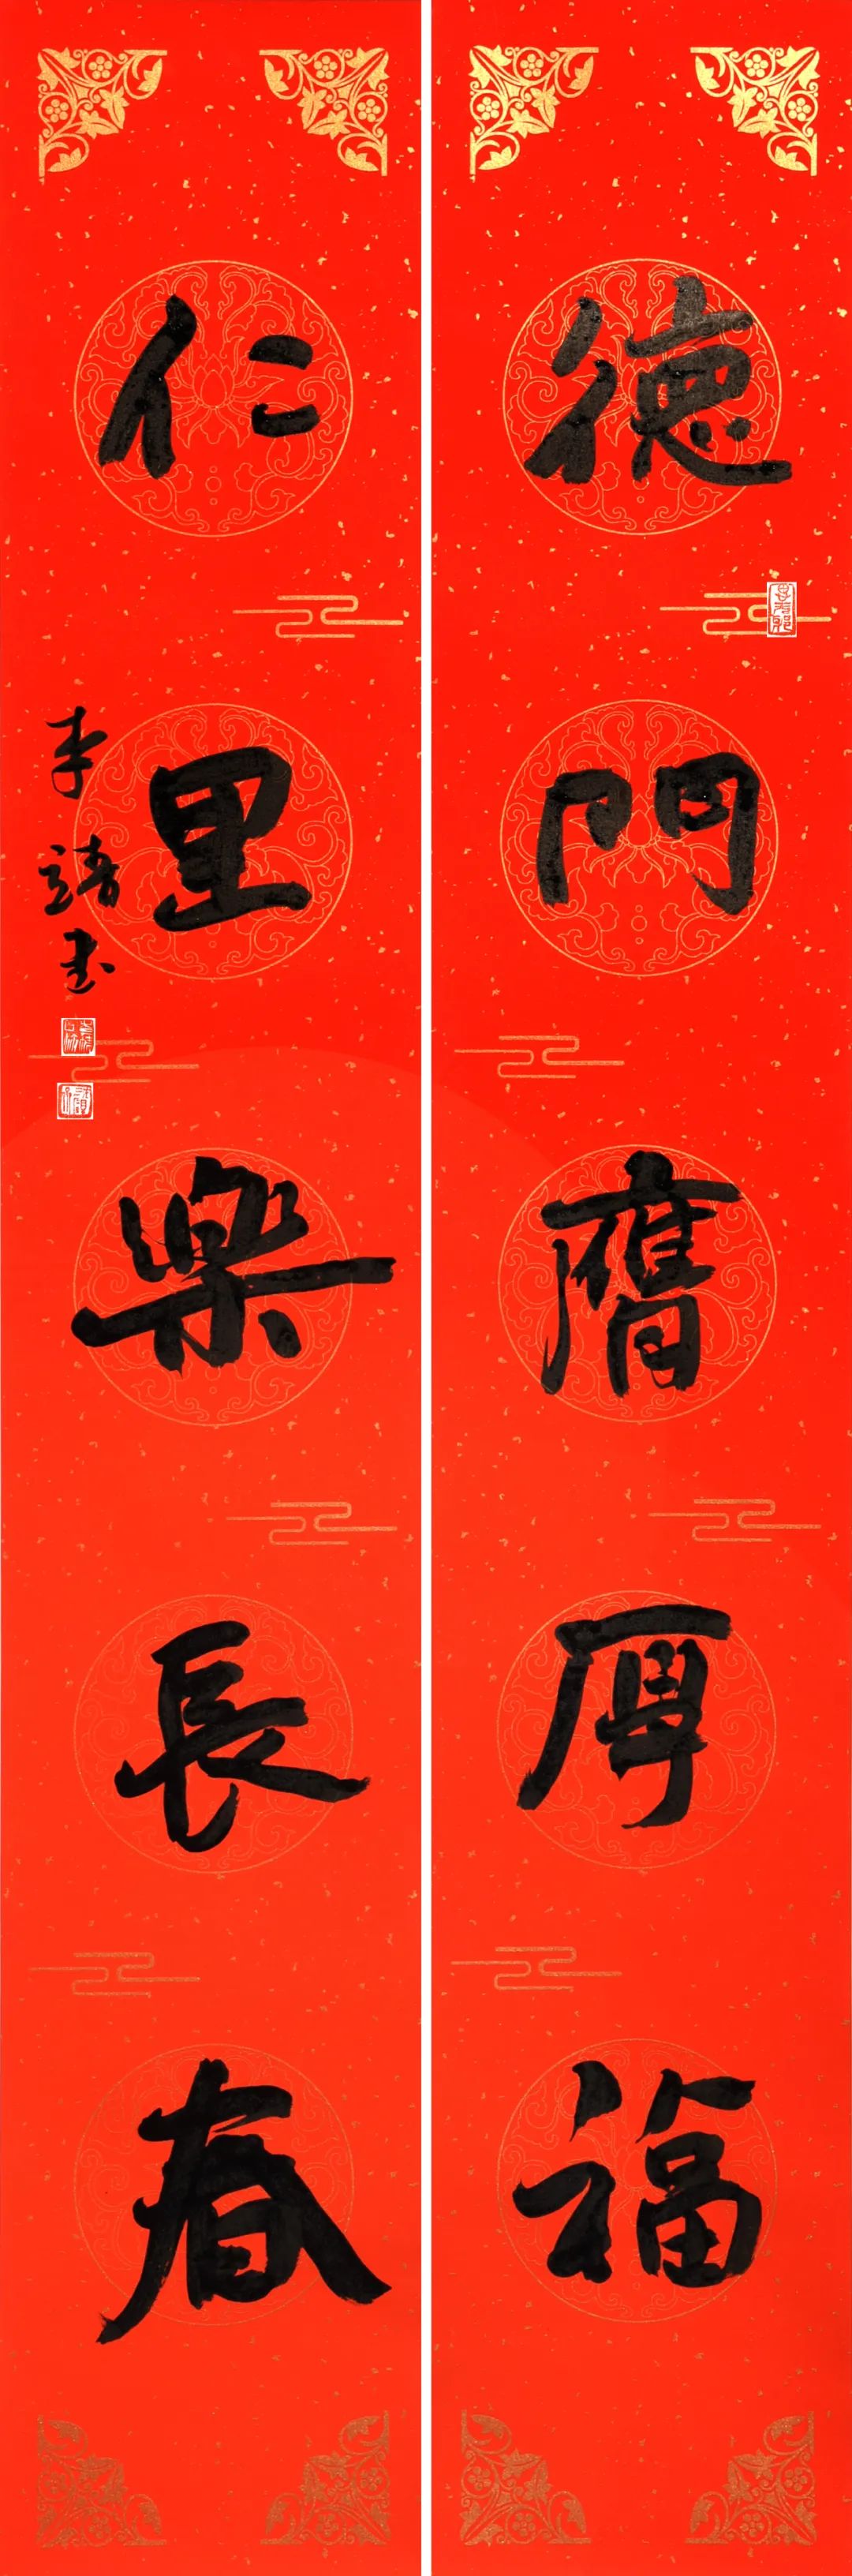 德門膺厚福
仁里樂長春
李靖書